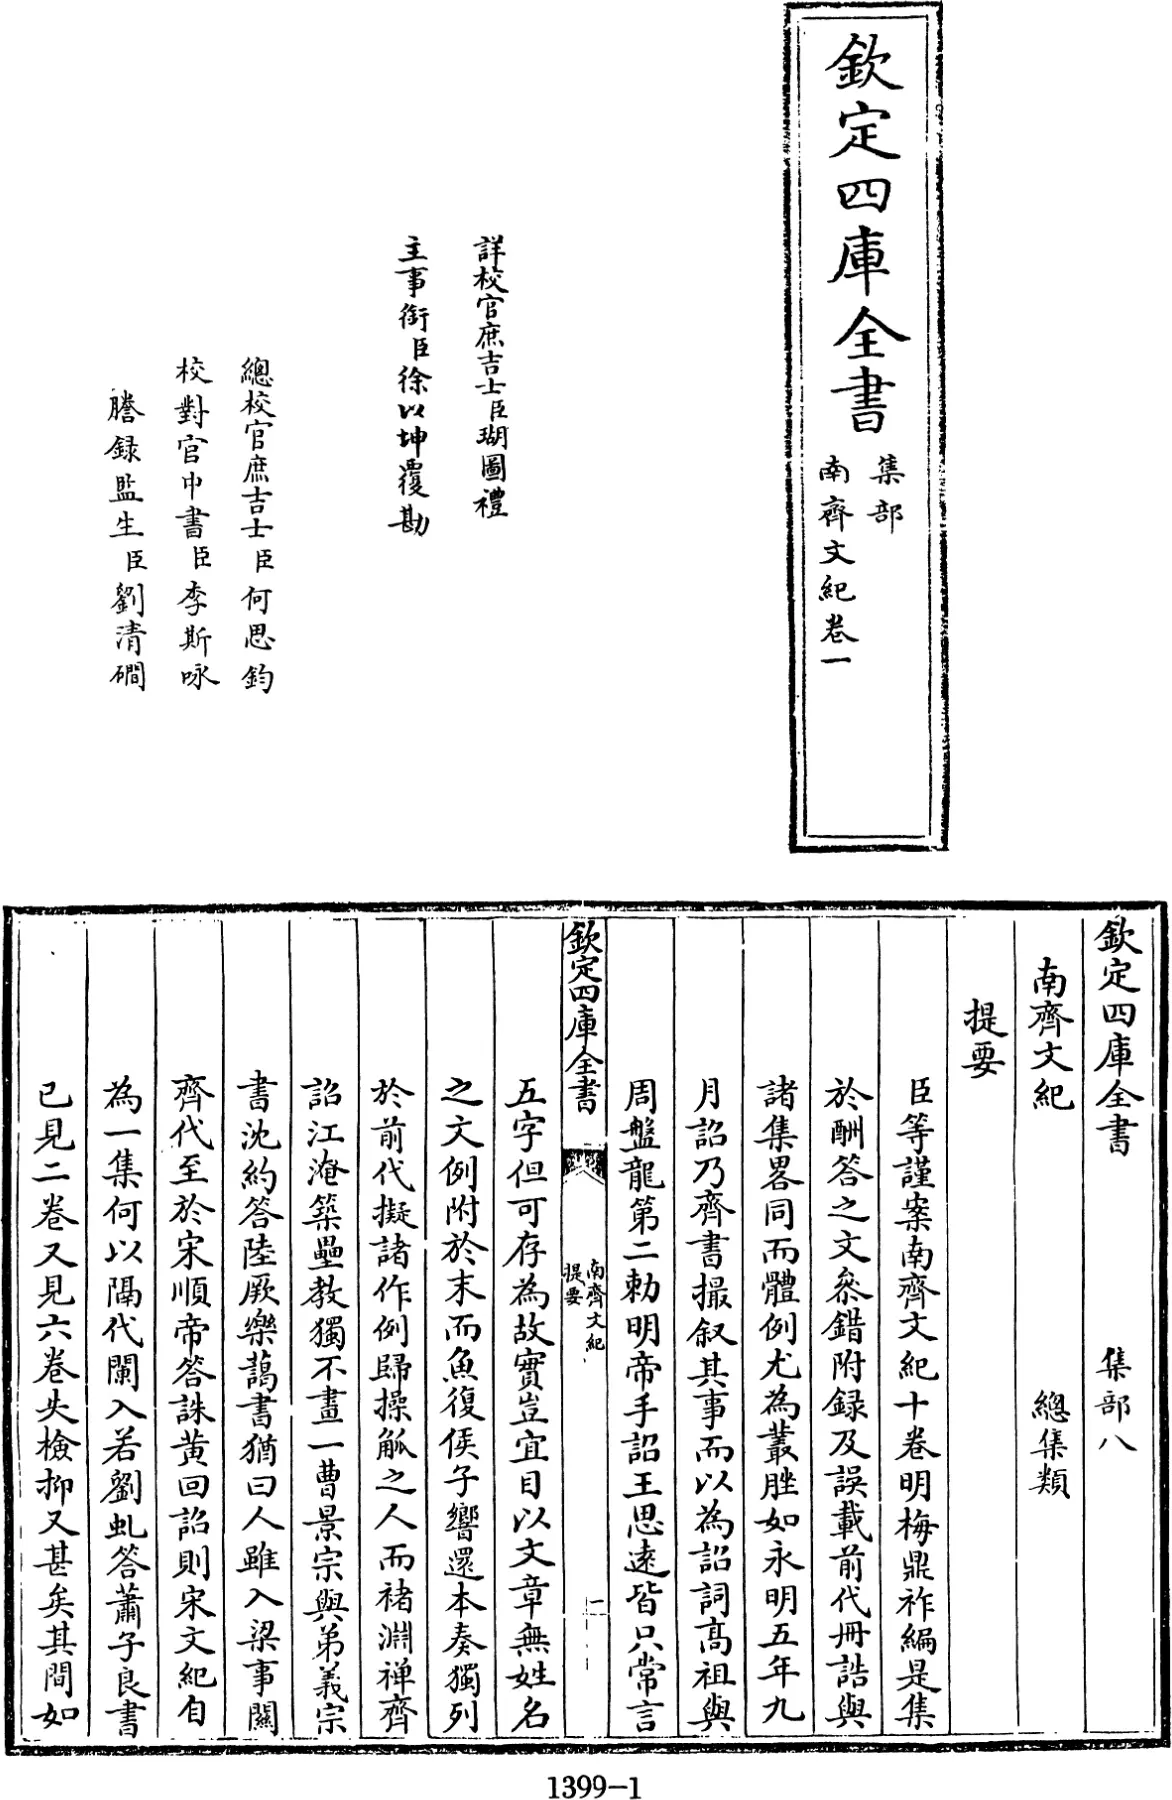 欽定四庫全書
集部
南齊文紀卷一
詳校官庶吉士臣瑚圖禮
主事銜臣徐以坤覆勘
總校官庶吉士臣何思鈞
校對官中書臣李斯咏
謄録監生臣劉清磵
欽定四庫全書 集部八
南齊文紀 總集類
提要
臣等謹案南齊文紀十卷明梅鼎祚編是集
於酬答之文叅錯附録及誤載前代冊誥與
諸集畧同而體例尤為叢脞如永明五年九
月詔乃齊書撮叙其事而以為詔詞高祖與
周盤龍第二勅明帝手詔王思遠皆只常言
欽定四庫全書
南齊文紀
提要
二
五字但可存為故實豈宜目以文章無姓名
之文例附於末而魚復侯子響還本奏獨列
於前代擬諸作例歸操觚之人而禇淵禪齊
詔江淹築壘教獨不畫一曹景宗與弟義宗
書沈約答陸厥樂藹書猶曰人雖入梁事關
齊代至於宋順帝答誅黄回詔則宋文紀自
為一集何以隔代闌入若劉虬答蕭子良書
已見二卷又見六卷失檢抑又甚矣其間如
1399-1